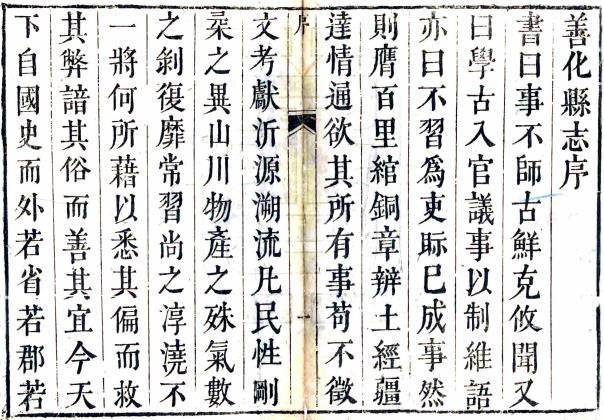 善化縣志序
書曰事不師古鮮克攸聞又
曰學古入官議事以制維語
亦曰不習爲吏眎已成事然
則膺百里綰銅章辨土經疆
達情通欲其所有事苟不徵
序 一
文考獻沂源溯流凡民性剛
柔之異山川物產之殊氣數
之剝復靡常習尚之淳澆不
一將何所藉以悉其偏而救
其弊諳其俗而善其宜今天
下自國史而外若省若郡若